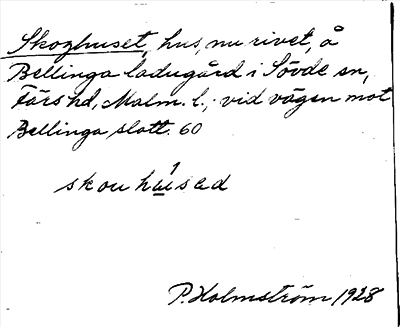 Skoghuset, hus, nu rivet, å
Bellinga ladugård i Sövde sn,
Färs hd, Malm. l., vid vägen mot
Bellinga slott. 60
skou hu̱ísad
P. Holmström 1928